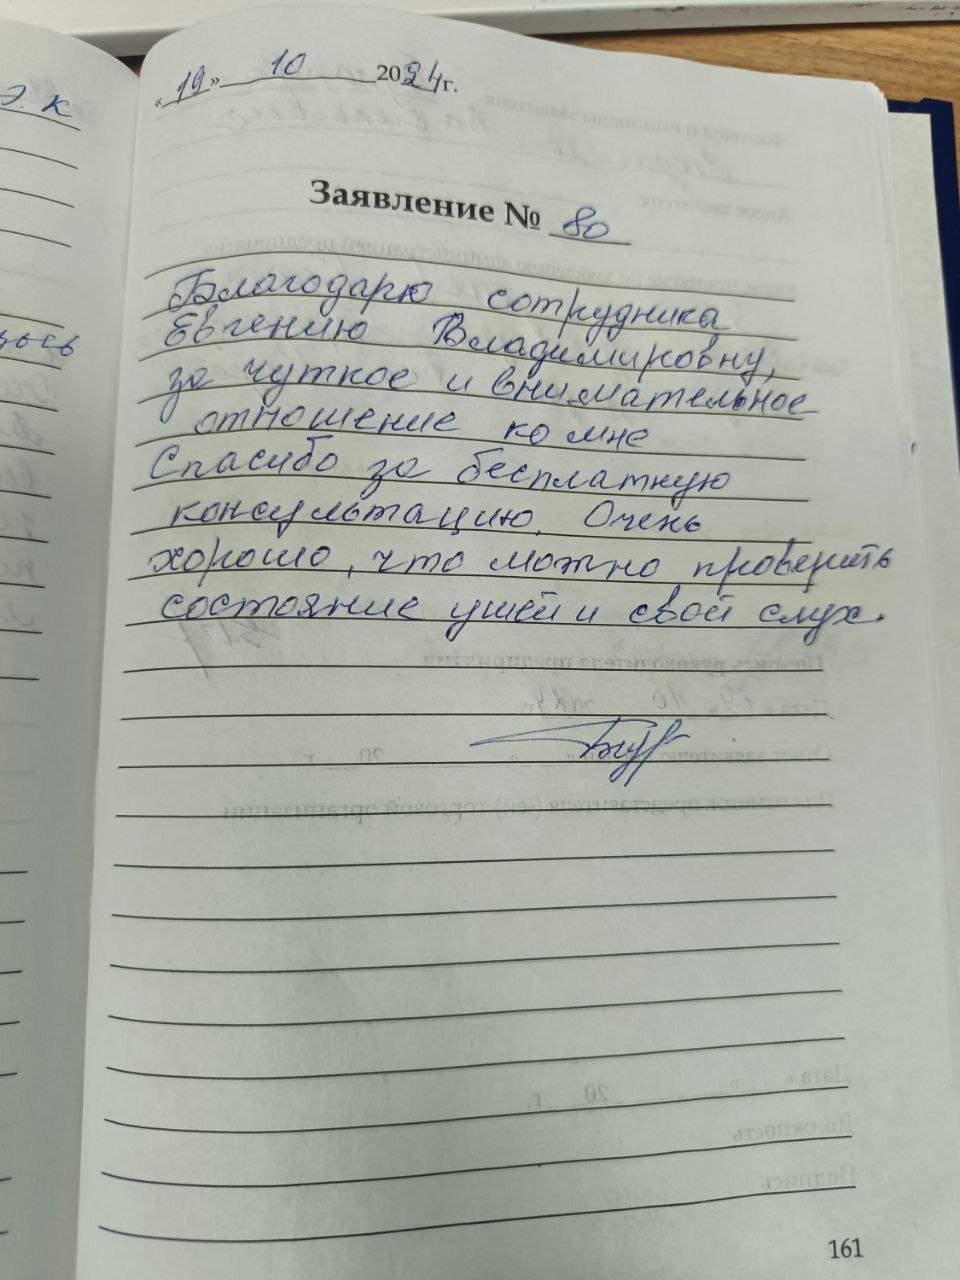 э. к
«19» 10 2024г.
Заявление № 80
Благодарю сотрудника
Евгению Владимировну,
за чуткое и внимательное
отношение ко мне
Спасибо за бесплатную
консультацию. Очень
хорошо, что можно проверить
состояние ушей и свой слух.
161